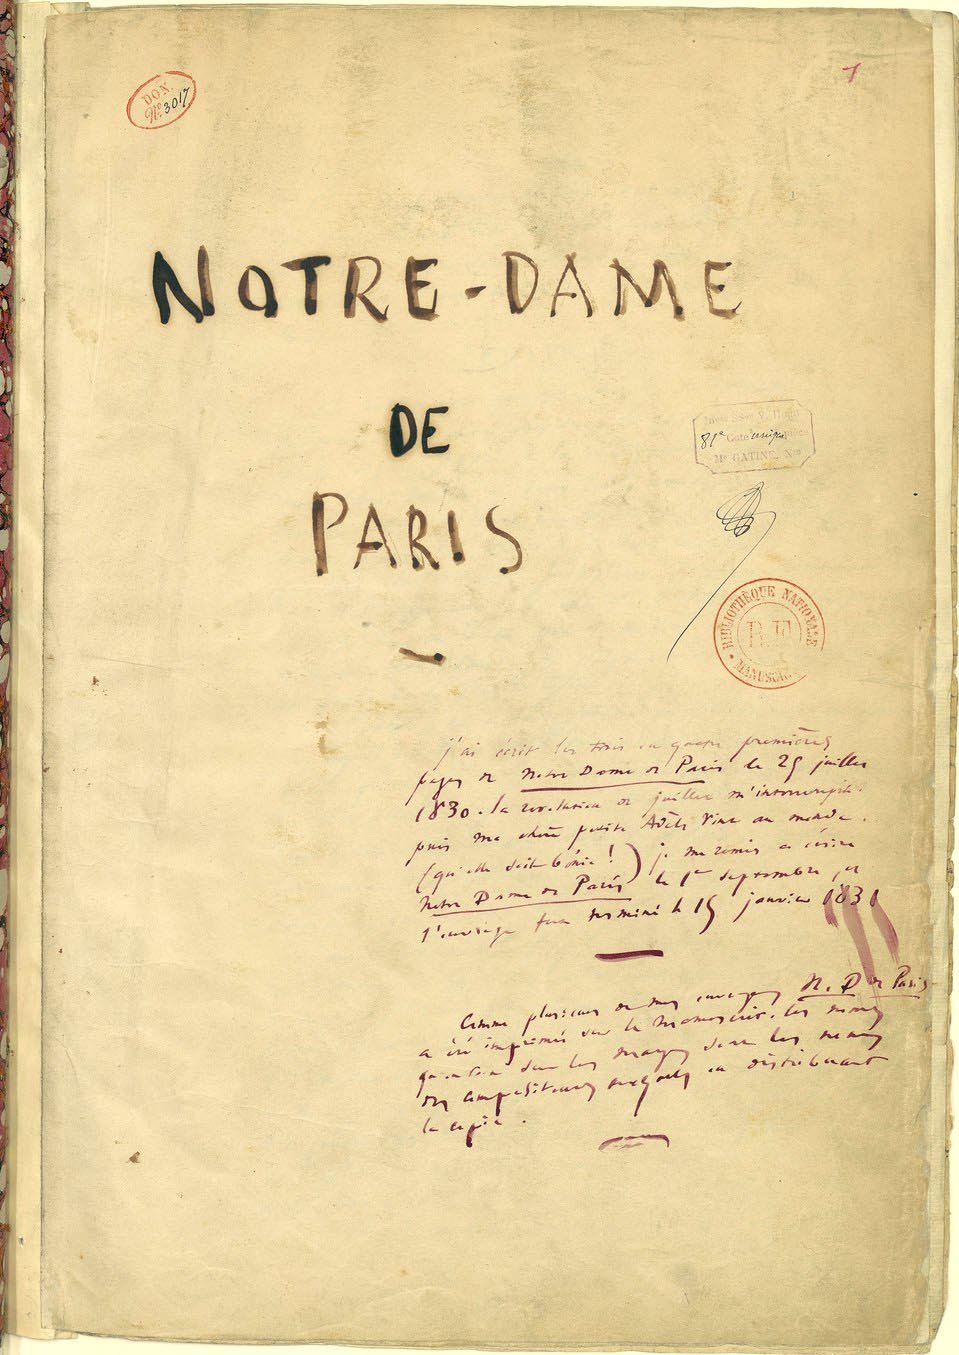 DON.
Nº 3017
1
NOTRE-DAME
DE
PARIS
81e Cote
Me GATINE, Nre
BIBLIOTHÈQUE NATIONALE
R.F.
MANUSCRITS
j'ai écrit les trois ou quatre premières
pages de Notre Dame de Paris le 25 juillet
1830. la révolution de juillet m'interrompit.
puis ma chère petite Adèle vint au monde.
(qu'elle soit bénie!) je me remis à écrire
Notre Dame de Paris le 1er septembre, et
l'ouvrage fut terminé le 15 janvier 1831
Comme plusieurs de mes ouvrages N. D de Paris
a été imprimé sur le manuscrit. les noms
qu'on lit dans les marges sont les noms
des compositeurs auxquels on distribuait
la copie.